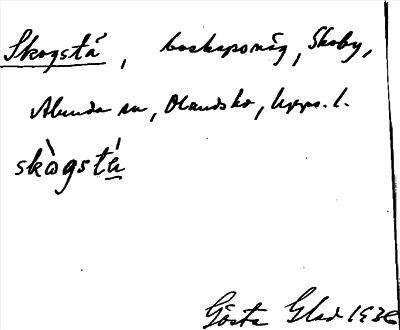 Skogstå, boskapsväg, Skoby,
Alunda sn, Olands hd, Upps. l.
skògstá
Gösta Glad 1936